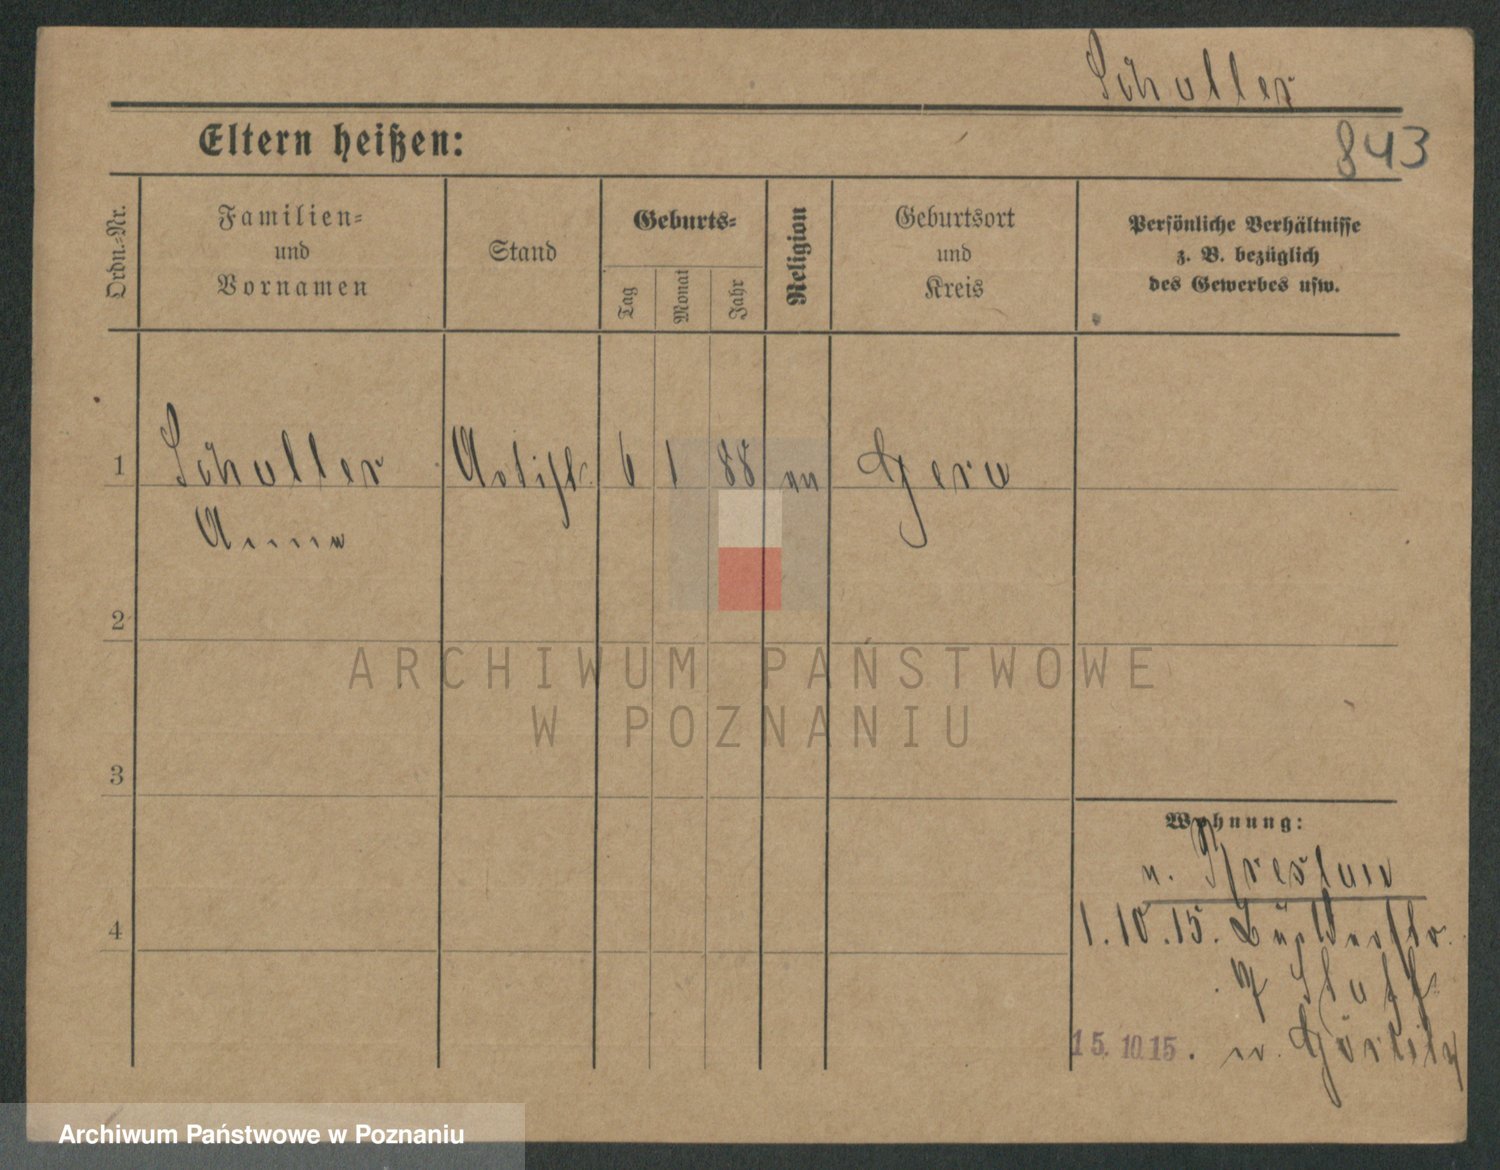 Schuller
Eltern heißen:
843
Ordn.-Nr.
Familien-
und
Vornamen
Stand
Geburts-
Tag
Monat
Jahr
Religion
Geburtsort
und
Kreis
Persönliche Verhältnisse
z. B. bezüglich
des Gewerbes usw.
1
Schuller
Artist.
6
1
88
Gera
Anna
2
ARCHIWUM PAŃSTWOWE
W POZNANIU
3
Wohnung:
v. Breslau
4
1.10.15.
15.10.15. n. Görlitz
Archiwum Państwowe w Poznaniu